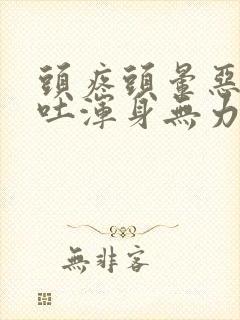 頭疼頭暈惡
吐渾身無力
無非客